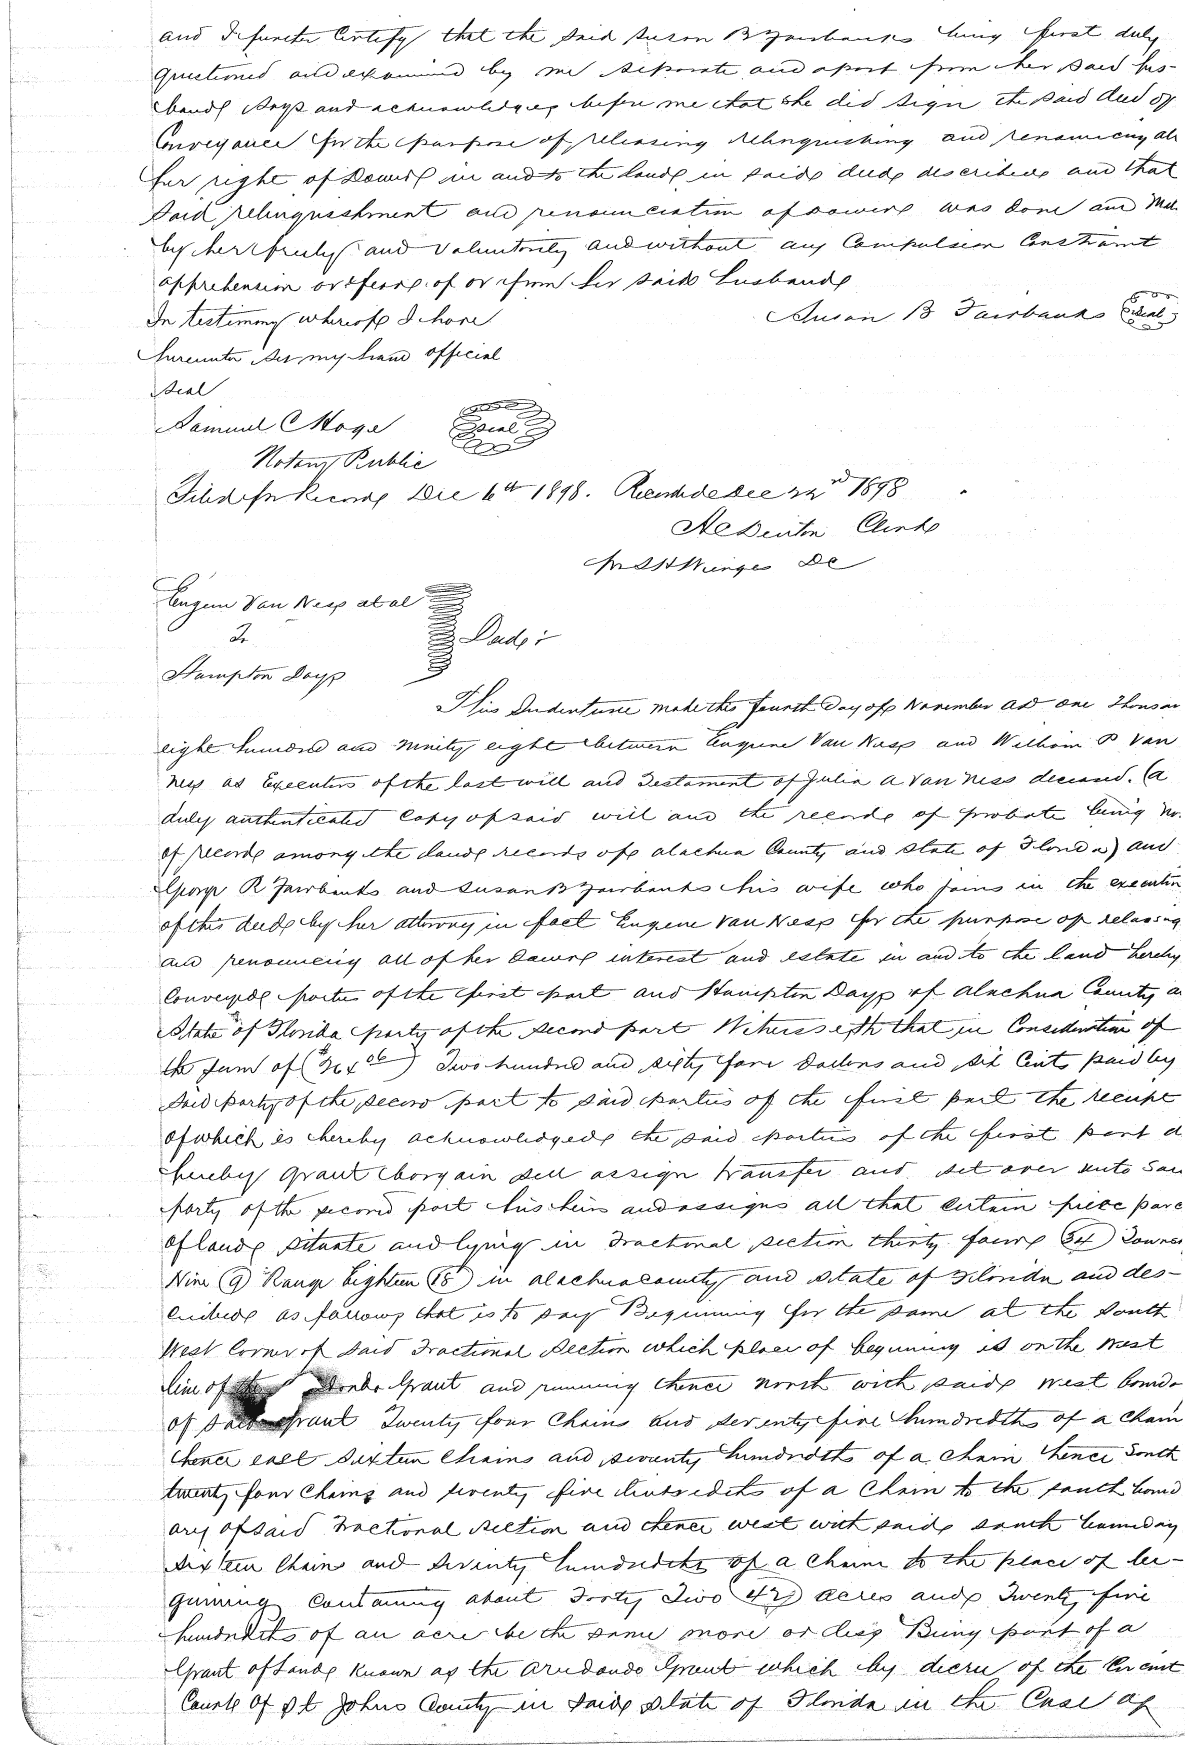 and I further Certify that the said Susan B Fairbanks being first duly
questioned and examined by me separate and apart from her said hus-
band says and acknowledges before me that she did sign the said deed of
Conveyance for the purpose of releasing relinquishing and renouncing all
her right of Dower in and to the land in said deed described and that
said relinquishment and renunciation of dower was done and Made
by her freely and voluntarily and without any Compulsion Constraint
apprehension or fear of or from her said husband
In testimony whereof I have
Susan B Fairbanks Seal
hereunto set my hand official
seal
Samuel C Seal
Notary Public
Filed for Record Dec 6th 1898. Recorded Dec 22nd 1898
Clerk
DC
Eugene Van Ness et al
To
Deed:
Hampton Days
This Indenture made this fourth Day of November AD one Thousan
eight hundred and ninety eight between Eugene Van Ness and William P Van
Ness as Executors of the last will and Testament of Julia A Van Ness deceased. (a
duly authenticated Copy of said will and the record of probate being no.
of record among the land records of Alachua County and State of Florida) and
George R Fairbanks and Susan B Fairbanks his wife who joins in the execution
of this deed by her attorney in fact Eugene Van Ness for the purpose of releasing
and renouncing all of her Dower interest and estate in and to the land hereby
Conveyed parties of the first part and Hampton Days of Alachua County a
State of Florida party of the second part Witnesseth that in Consideration of
the sum of ($264 06) Two hundred and sixty four Dollars and six Cents paid by
said party of the second part to said parties of the first part the receipt
of which is hereby acknowledged the said parties of the first part d
hereby grant bargain sell assign transfer and set over unto sai
party of the second part his heirs and assigns all that certain piece parc
of land situate and lying in Fractional section thirty four (34) Towns
Nine (9) Range Eighteen (18) in Alachua County and state of Florida and des-
cribed as follows that is to say Beginning for the same at the South
West Corner of said Fractional Section which place of beginning is on the West
line of the Grant and running thence North with said West bound
of said Grant Twenty four Chains and seventy five hundredths of a chain
thence east sixteen Chains and seventy hundredths of a chain thence South
twenty four Chains and seventy five hundredths of a chain to the south bound
ary of said Fractional Section and thence west with said south boundary
sixteen Chains and Seventy hundredths of a chain to the place of be-
ginning containing about Forty Two (42) acres and Twenty five
hundredths of an acre be the same more or less Being part of a
Grant of land known as the Aredondo Grant which by decree of the Circuit
Court of St Johns County in said state of Florida in the Case of